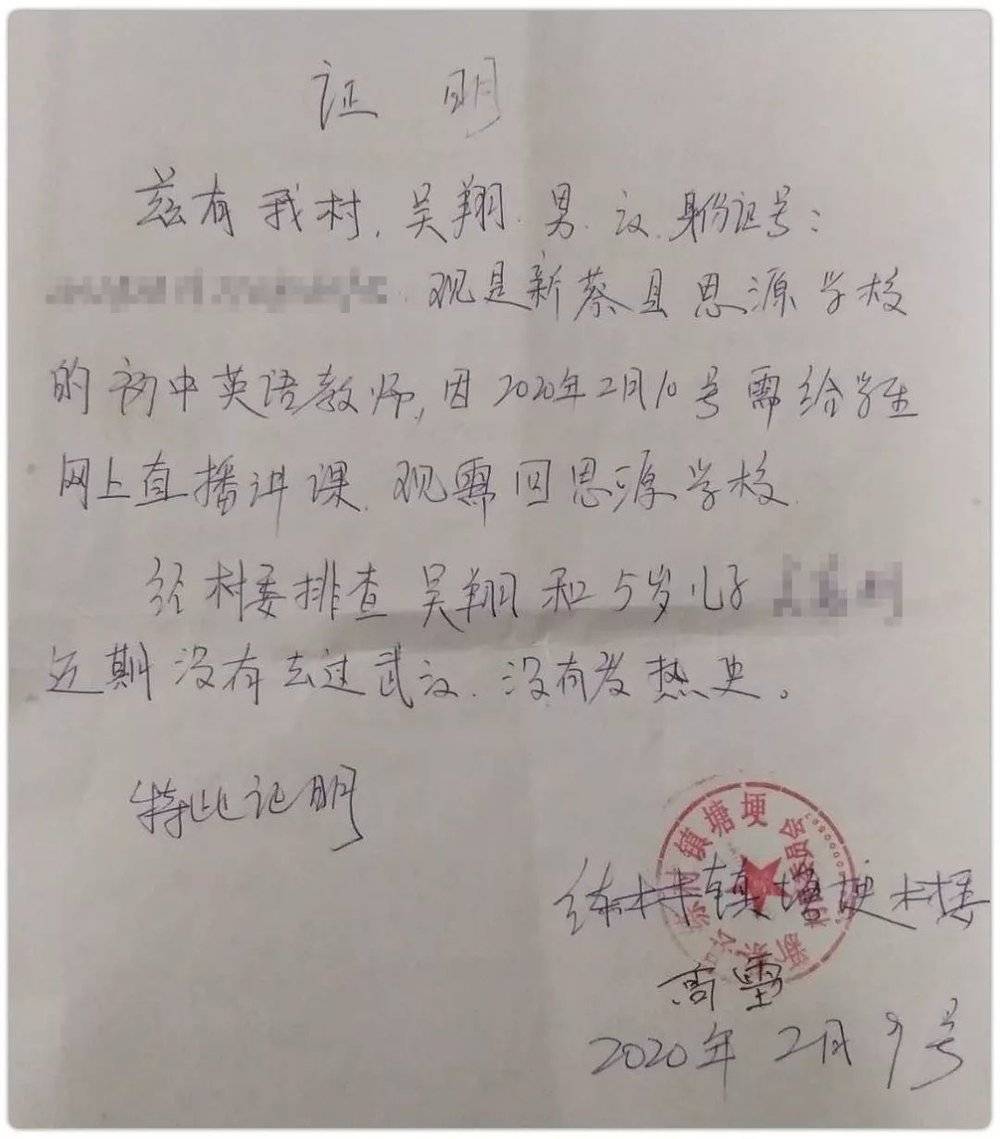 证 明
兹有我村,吴翔.男.汉.身份证号:
现是新蔡县思源学校
的初中英语教师,因2020年2月10号需给学生
网上直播讲课.现需回思源学校.
经村委排查吴翔和5岁儿子
近期没有去过武汉.没有发热史。
特此证明
练村镇塘埂村委
高雪
2020年2月9号
新蔡县练村镇塘埂村民委员会